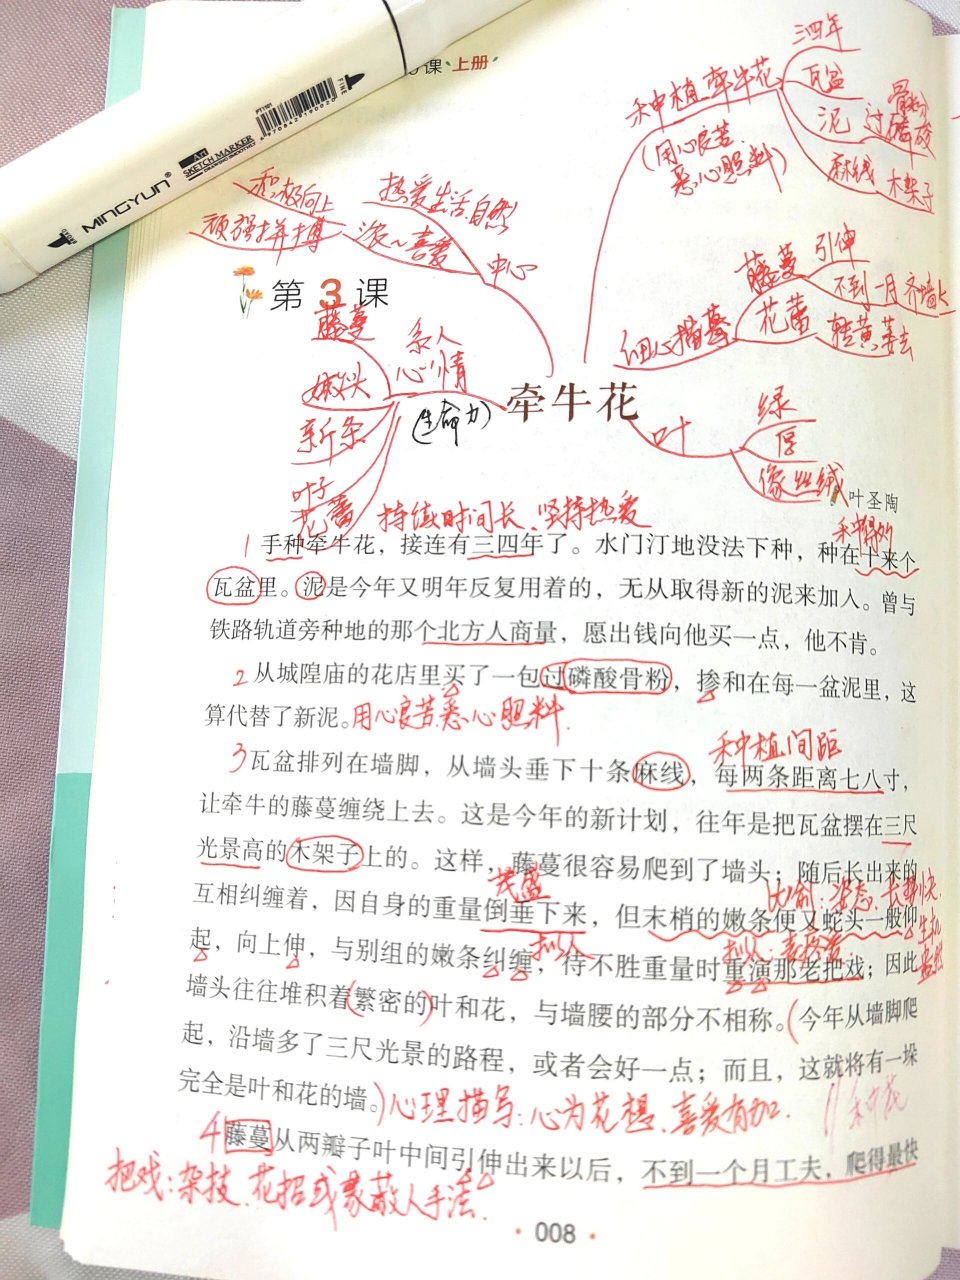 课 上册
MINGYUN®
SKETCH MARKER
DRAWING SMOOTHLY
FINE
PT1101
6970842190020
三四年
种植牵牛花
瓦盆
骨粉
泥 过磷酸
麻线 木架子
(用心良苦
悉心照料)
积极向上
热爱生活.自然
顽强拼搏
喜爱
中心
引伸
藤蔓
不到一月齐墙头
花蕾
细心描摹
第3课
藤蔓
系人
心情
嫩头
新条
叶子
花蕾
(生命力)
牵牛花
叶
绿
厚
像丝绒
叶圣陶
持续时间长、坚持热爱
1 手种牵牛花，接连有三四年了。水门汀地没法下种，种在十来个
瓦盆里。泥是今年又明年反复用着的，无从取得新的泥来加入。曾与
铁路轨道旁种地的那个北方人商量，愿出钱向他买一点，他不肯。
2 从城隍庙的花店里买了一包过磷酸骨粉，掺和在每一盆泥里，这
算代替了新泥。用心良苦.悉心照料.
种植间距
3 瓦盆排列在墙脚，从墙头垂下十条麻线，每两条距离七八寸，
让牵牛的藤蔓缠绕上去。这是今年的新计划，往年是把瓦盆摆在三尺
光景高的木架子上的。这样，藤蔓很容易爬到了墙头；随后长出来的
茂盛
比喻：姿态、长势快，
互相纠缠着，因自身的重量倒垂下来，但末梢的嫩条便又蛇头一般仰
生机盎然
拟人
起，向上伸，与别组的嫩条纠缠，待不胜重量时重演那老把戏；因此
墙头往往堆积着(繁密的)叶和花，与墙腰的部分不相称。(今年从墙脚爬
起，沿墙多了三尺光景的路程，或者会好一点；而且，这就将有一垛
完全是叶和花的墙。)心理描写：心为花想、喜爱有加.
4 藤蔓从两瓣子叶中间引伸出来以后，不到一个月工夫，爬得最快
把戏：杂技、花招或蒙蔽人手法.
008